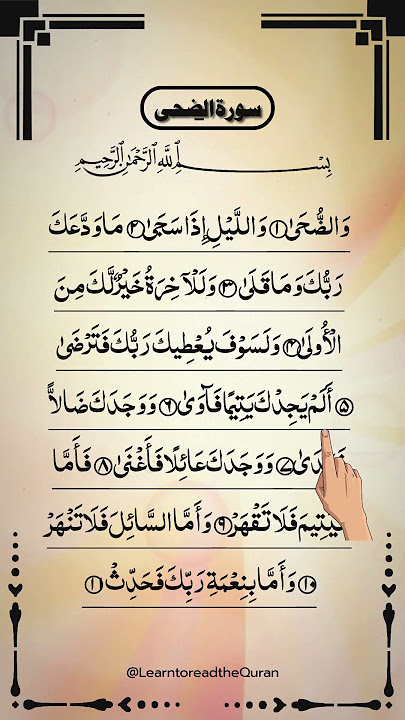 سورة الضحى
بِسْمِ اللَّهِ الرَّحْمَٰنِ الرَّحِيمِ
وَالضُّحَىٰ ١ وَاللَّيْلِ إِذَا سَجَىٰ ٢ مَا وَدَّعَكَ
رَبُّكَ وَمَا قَلَىٰ ٣ وَلَلْآخِرَةُ خَيْرٌ لَّكَ مِنَ
الْأُولَىٰ ٤ وَلَسَوْفَ يُعْطِيكَ رَبُّكَ فَتَرْضَىٰ
٥ أَلَمْ يَجِدْكَ يَتِيمًا فَآوَىٰ ٦ وَوَجَدَكَ ضَالًّا
٧ وَوَجَدَكَ عَائِلًا فَأَغْنَىٰ ٨ فَأَمَّا
فَلَا تَقْهَرْ ٩ وَأَمَّا السَّائِلَ فَلَا تَنْهَرْ
١٠ وَأَمَّا بِنِعْمَةِ رَبِّكَ فَحَدِّثْ
@LearntoreadtheQuran